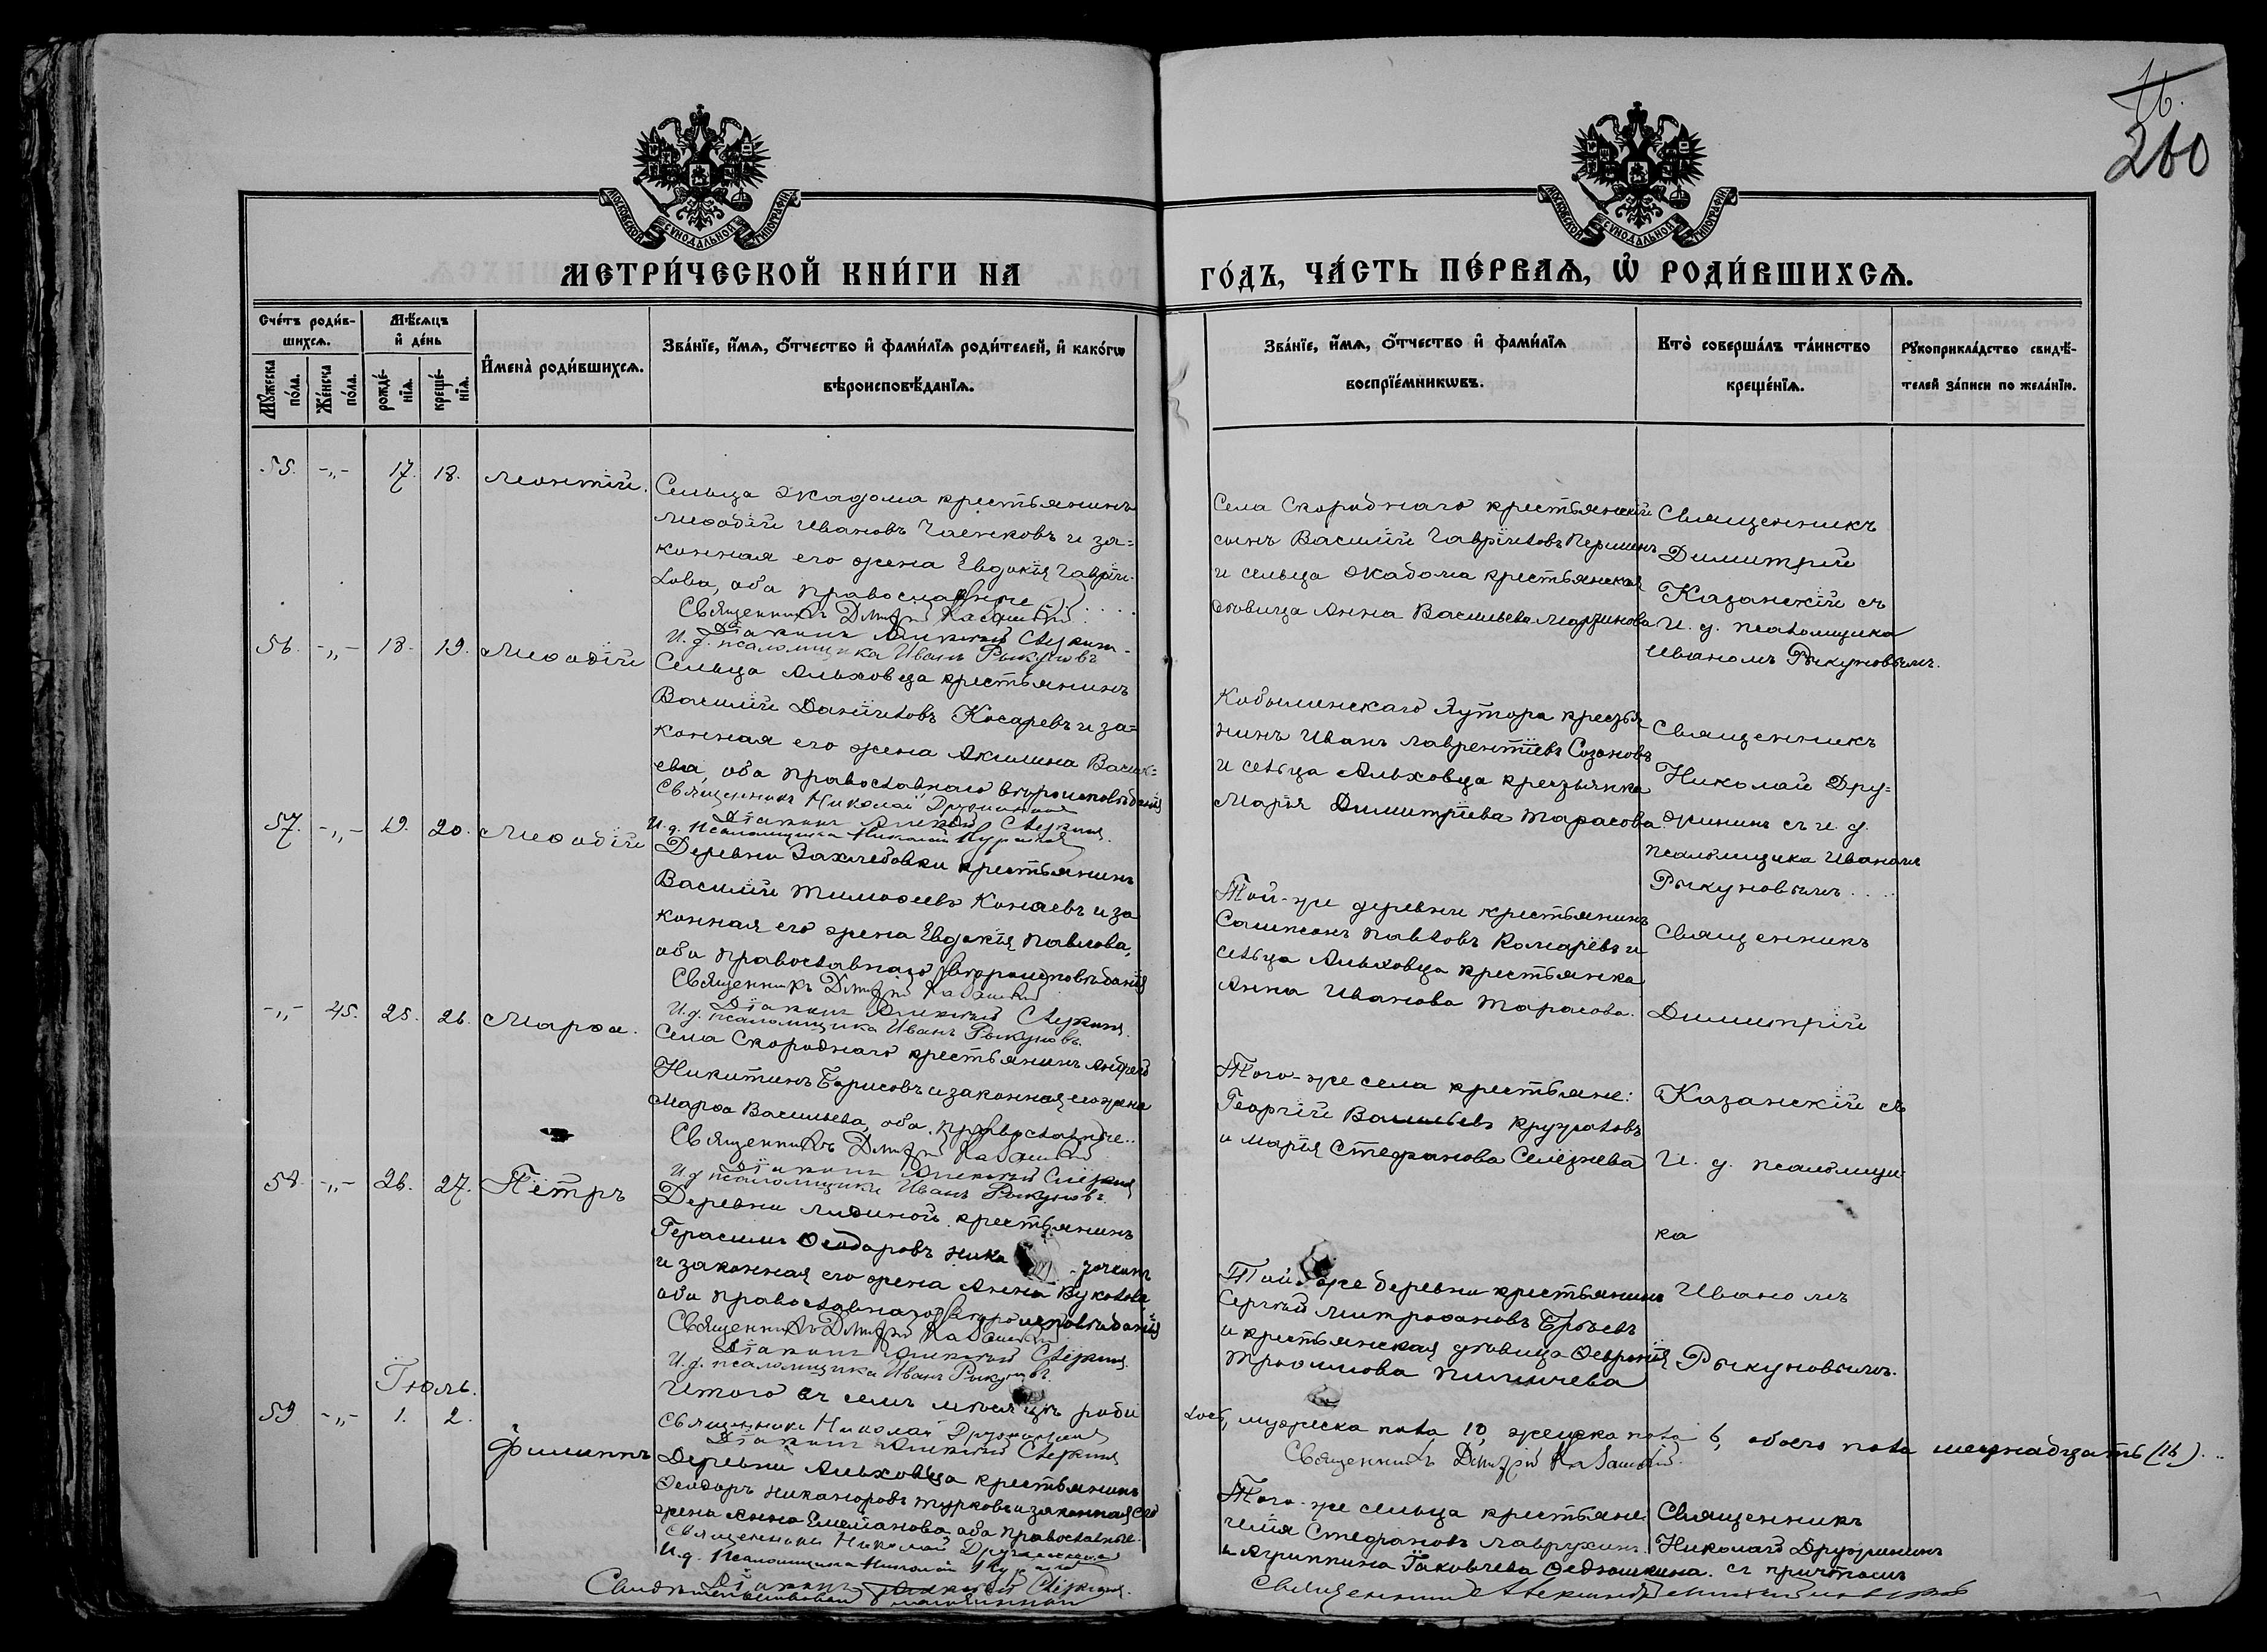 16.
260
МОСКОВСКОЙ СѴНОДАЛЬНОЙ ТИПОГРАФІИ
МОСКОВСКОЙ СѴНОДАЛЬНОЙ ТИПОГРАФІИ
МЕТРИ́ЧЕСКОЙ КНИ́ГИ НА
ГО́ДЪ, ЧА́СТЬ ПЕ́РВАѦ, Ѡ҆ РОДИ́ВШИХСѦ.
Сче́тъ роди́в-
шихсѧ.
Мꙋ́жеска по́ла.
Же́нска по́ла.
Мѣ́сѧцъ
и҆ де́нь
рожде́-
нїѧ.
креще́-
нїѧ.
И҆мена̀ роди́вшихсѧ.
Зва́нїе, и҆́мѧ, ѻ҆́тчество и҆ фами́лїѧ роди́телей, и҆ како́гѡ
вѣроисповѣ́данїѧ.
Зва́нїе, и҆́мѧ, ѻ҆́тчество и҆ фами́лїѧ
воспрїе́мникѡвъ.
Кто̀ соверша́лъ та́инство
креще́нїѧ.
Рꙋкоприкла́дство свидѣ́-
телей за́писи по жела́нїю.
55. -„- 17. 18. Леонтій.
Сельца Жадома крестьянинъ
Меѳодій Ивановъ Чаенковъ и за=
конная его жена Евдокія Гаврі-
лова, оба православные
Священникъ Дмитрій Казанскій
Діаконъ Алексѣй Слукинъ
И. д. псаломщика Иванъ Рыкуновъ
Села Скороднаго крестьянскій
сынъ Василій Гавріиловъ Першинъ
и сельца Жадома крестьянская
дѣвица Анна Васильева
Священникъ
Димитрій
Казанскій съ
И. д. псаломщика
Иваномъ Рыкуновымъ.
56. -„- 18. 19. Меѳодій
Сельца Альховца крестьянинъ
Василій Даніиловъ Косаревъ и за=
конная его жена Акилина Василь=
ева, оба православнаго вѣроисповѣданія
Священникъ Николай Дружининъ
Діаконъ Алексѣй Слукинъ
И. д. псаломщика Николай
Кобылинскаго Хутора крестья-
нинъ Иванъ Лаврентіевъ Созоновъ
и сельца Альховца крестьянка
Марія Димитріева Тарасова.
Священникъ
Николай Дру=
жининъ съ и. д.
псаломщика Иваномъ
Рыкуновымъ....
57. -„- 19. 20. Меѳодій
Деревни Захлебовки крестьянинъ
Василій Тимоѳеевъ Конаевъ и за
конная его жена Евдокія Павлова,
оба православнаго вѣроисповѣданія
Священникъ Дмитрій Казанскій
Діаконъ Алексѣй Слукинъ.
И. д. псаломщика Иванъ Рыкуновъ.
Той-же деревни крестьянинъ
Сампсонъ Павловъ Комарёвъ и
сельца Альховца крестьянка
Анна Иванова Тарасова.
Священникъ
Димитрій
-„- 45. 25. 26. Марѳа.
Села Скороднаго крестьянинъ Андрей
Никитинъ Борисовъ и законная его жена
Марѳа Васильева, оба православные..
Священникъ Дмитрій Казанскій
Діаконъ Алексѣй Слукинъ
И. д. псаломщика Иванъ Рыкуновъ.
Того-же села крестьяне:
Георгій Васильевъ Кругловъ
и Марія Стефанова Селезнева
Казанскій съ
И. д. псаломщи-
ка
58. -„- 26. 27. Пётръ
Деревни крестьянинъ
Герасимъ Ѳеодоровъ
и законная его жена Анна Вуколова
оба православнаго вѣроисповѣданія
Священникъ Дмитрій Казанскій
Діаконъ Алексѣй Слукинъ.
И. д. псаломщика Иванъ Рыкуновъ.
Той же деревни крестьянинъ
Сергѣй Митрофановъ
и крестьянская дѣвица Ѳеѵронія
Трофимова Пиличева
Иваномъ
Рыкуновымъ.
Итого въ семъ мѣсяцѣ роди
лось, мужеска пола 10, женска пола 6, обоего пола шестнадцать (16)...
Священникъ Николай Дружининъ
Священникъ Дмитрій Казанскій.
Діаконъ Алексѣй Слукинъ
Іюль.
59 -„- 1. 2. Филиппъ
Деревни Альховца крестьянинъ
Ѳеодоръ Никаноровъ Турковъ и законная его
жена Анна Емеліанова оба православные.
Священникъ Николай Дружининъ
И. д. псаломщика Николай
Діаконъ Алексѣй Слукинъ.
Того-же сельца крестьяне
Илія Стефановъ Лаврухинъ
и Агриппина Іаковлева Ѳедюшкина.
Священникъ
Николай Дружининъ
съ причтомъ
Свидѣтельствовалъ
Священникъ Александръ